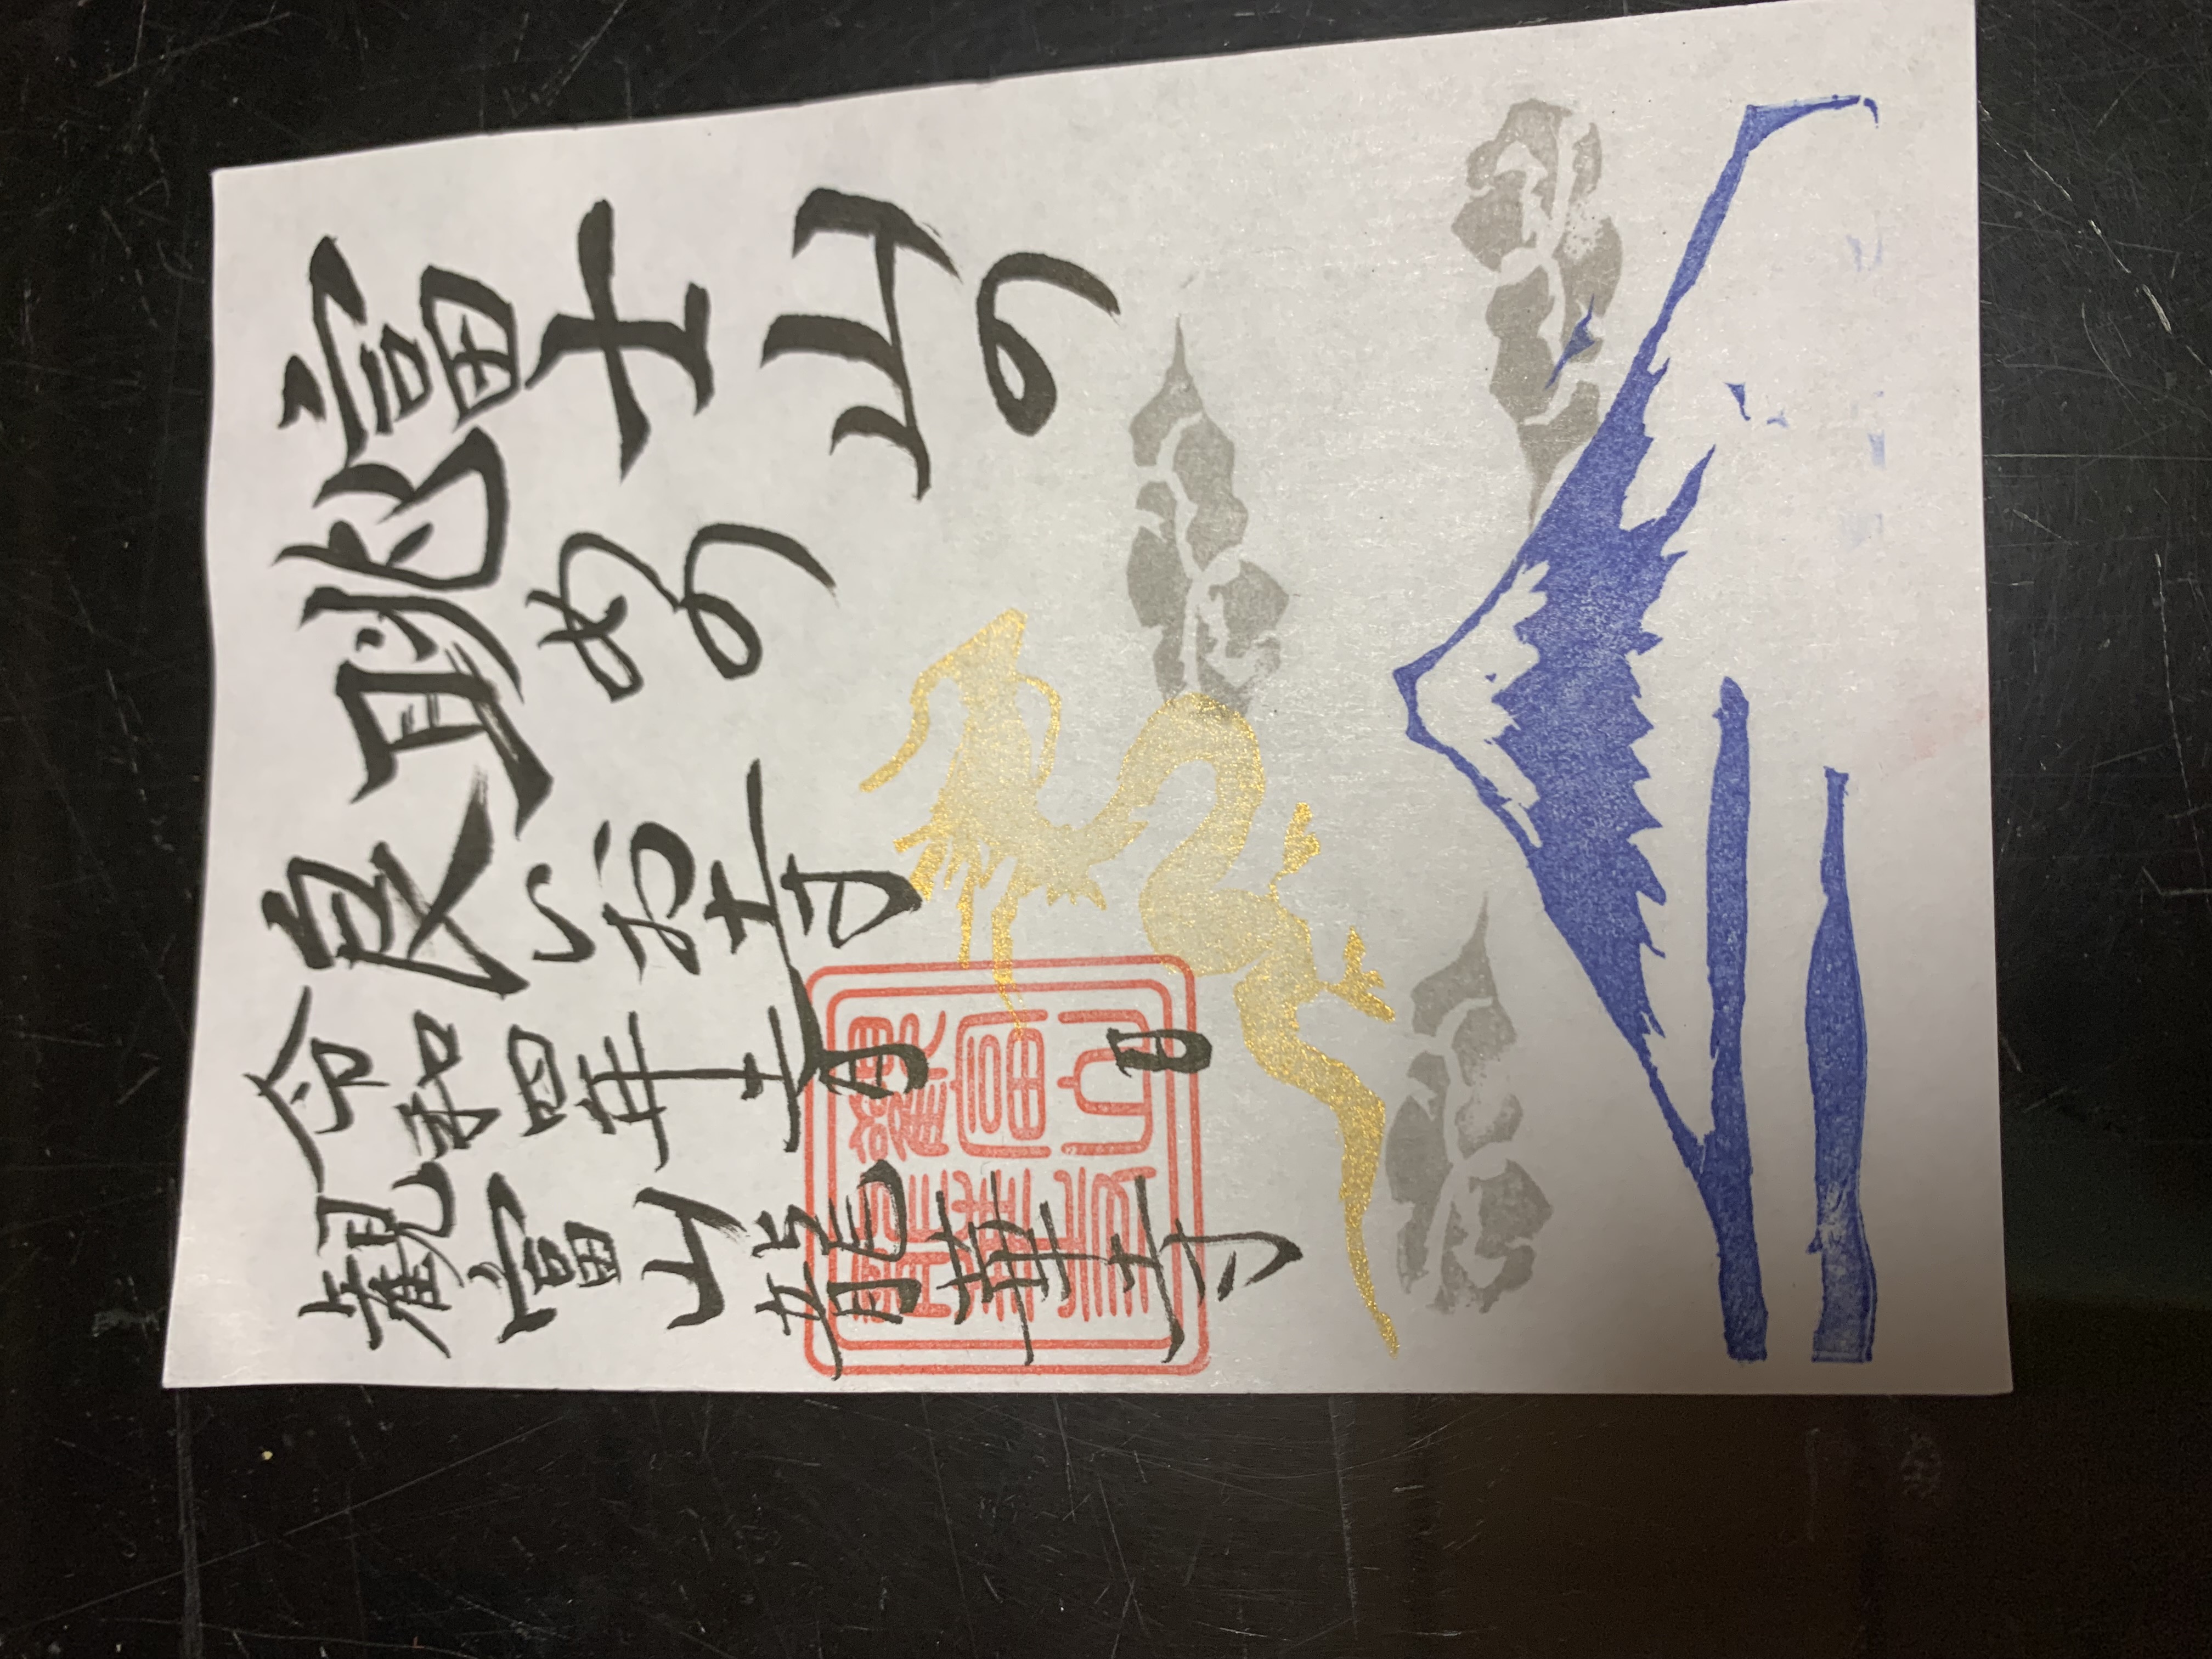 富士山の
眺めの
良いお寺
令和四年十一月 日
観富山龍華寺